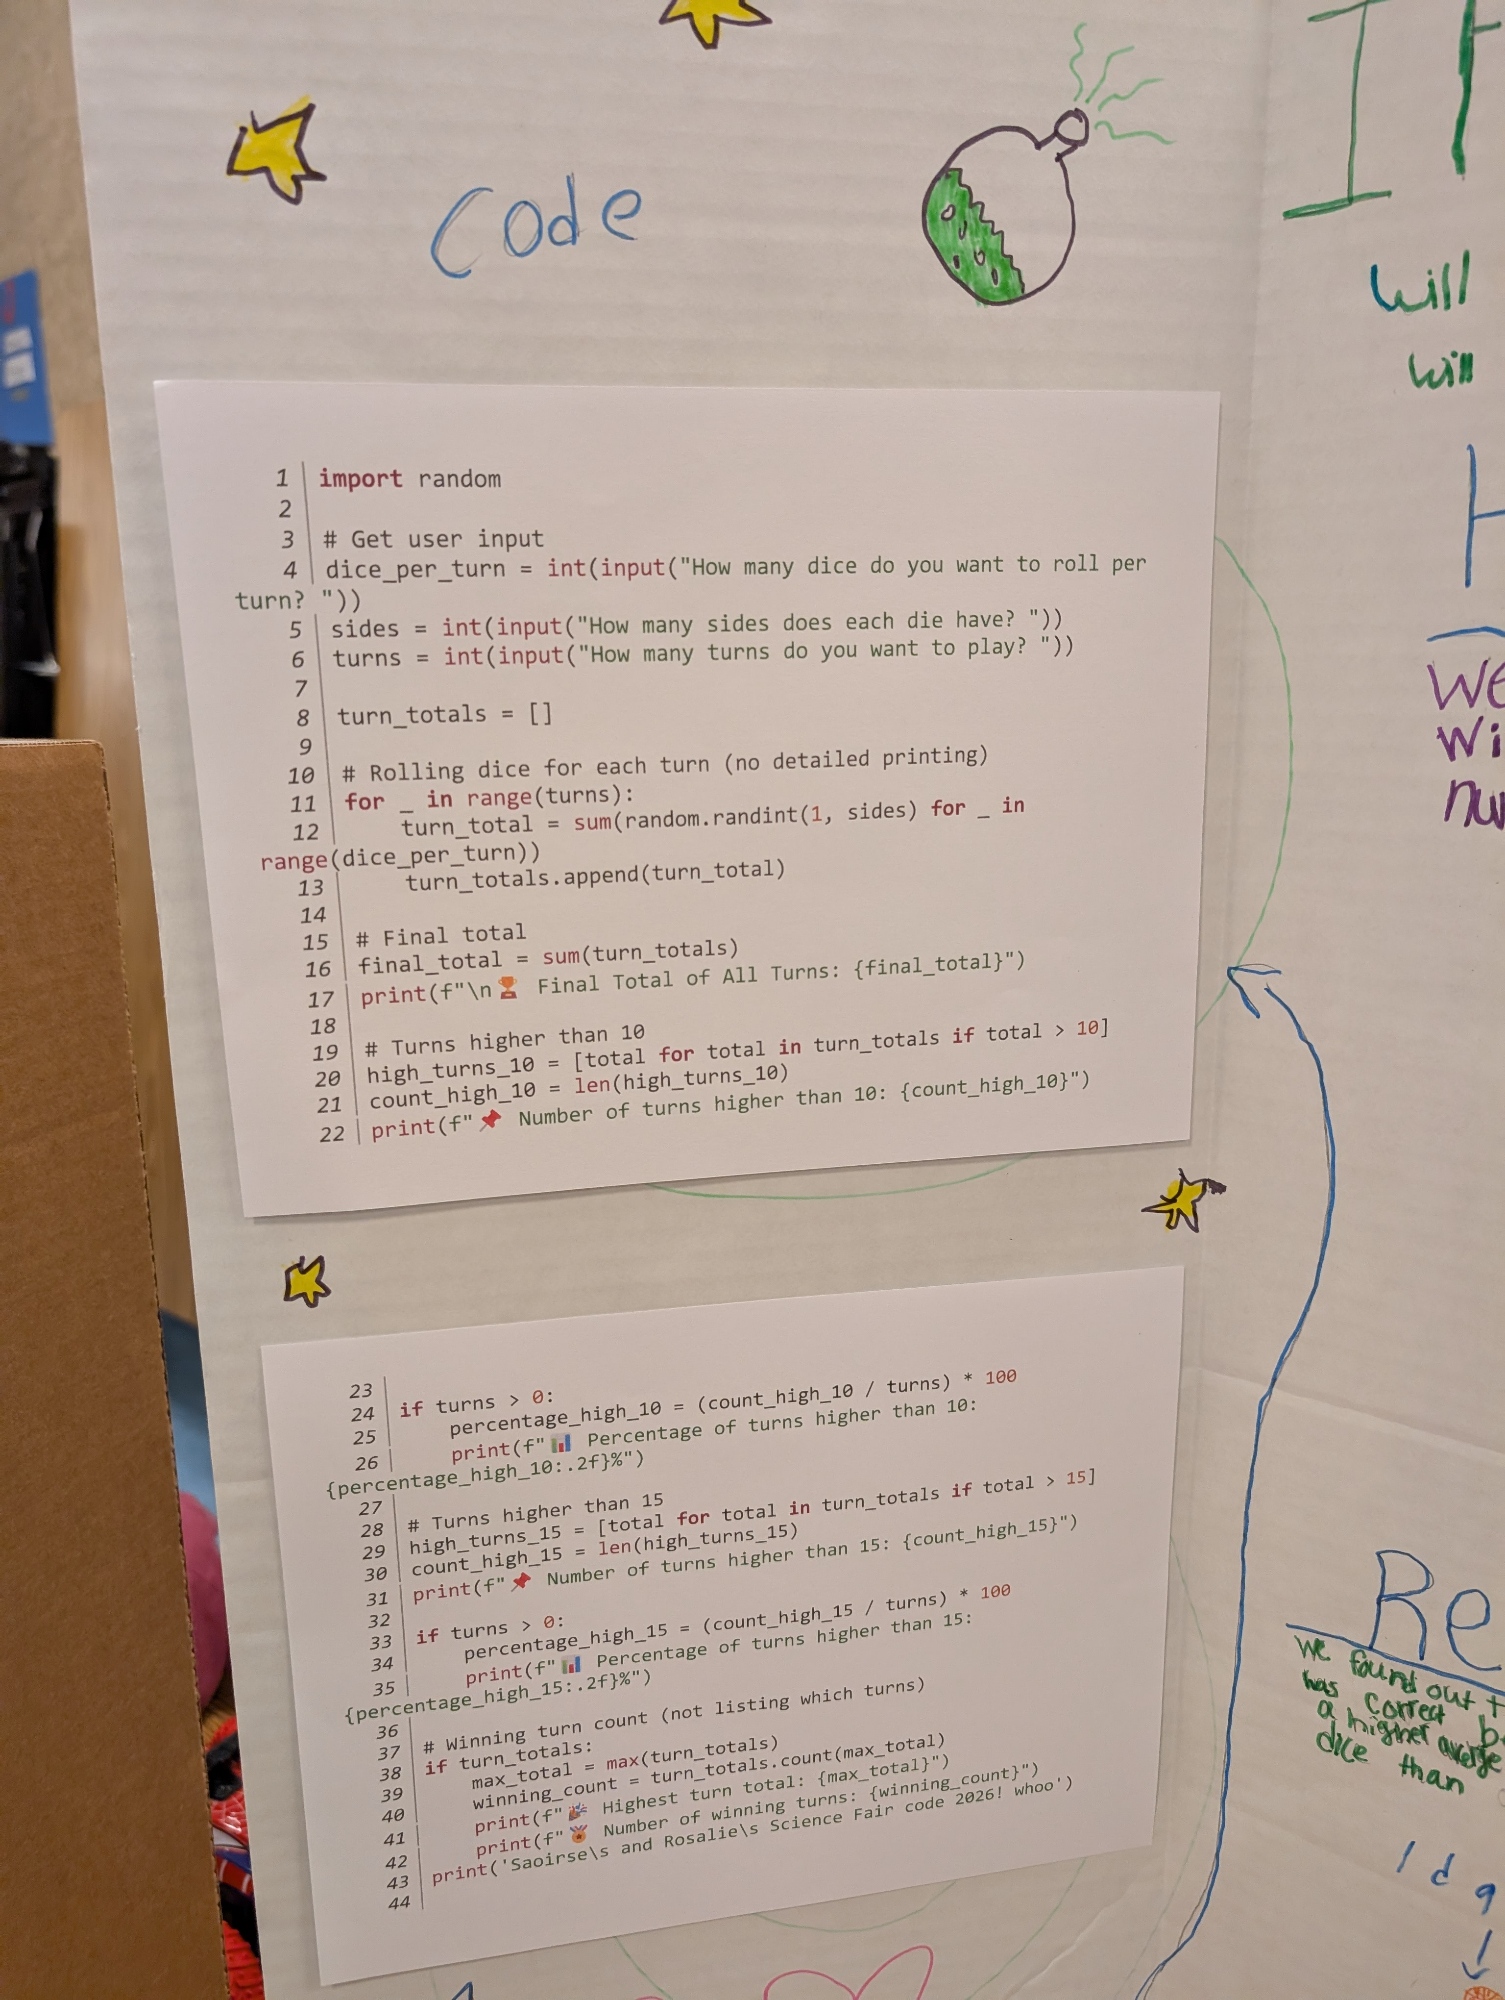 Code
1 import random
2
3 # Get user input
4 dice_per_turn = int(input("How many dice do you want to roll per
turn? "))
5 sides = int(input("How many sides does each die have? "))
6 turns = int(input("How many turns do you want to play? "))
7
8 turn_totals = []
9
10 # Rolling dice for each turn (no detailed printing)
11 for _ in range(turns):
12     turn_total = sum(random.randint(1, sides) for _ in
range(dice_per_turn))
13     turn_totals.append(turn_total)
14
15 # Final total
16 final_total = sum(turn_totals)
17 print(f"\n🏆 Final Total of All Turns: {final_total}")
18
19 # Turns higher than 10
20 high_turns_10 = [total for total in turn_totals if total > 10]
21 count_high_10 = len(high_turns_10)
22 print(f"📌 Number of turns higher than 10: {count_high_10}")
23
24 if turns > 0:
25     percentage_high_10 = (count_high_10 / turns) * 100
26     print(f"📊 Percentage of turns higher than 10:
{percentage_high_10:.2f}%")
27
28 # Turns higher than 15
29 high_turns_15 = [total for total in turn_totals if total > 15]
30 count_high_15 = len(high_turns_15)
31 print(f"📌 Number of turns higher than 15: {count_high_15}")
32
33 if turns > 0:
34     percentage_high_15 = (count_high_15 / turns) * 100
35     print(f"📊 Percentage of turns higher than 15:
{percentage_high_15:.2f}%")
36
37 # Winning turn count (not listing which turns)
38 if turn_totals:
39     max_total = max(turn_totals)
40     winning_count = turn_totals.count(max_total)
41     print(f"🎉 Highest turn total: {max_total}")
42     print(f"🏅 Number of winning turns: {winning_count}")
43 print('Saoirse\s and Rosalie\s Science Fair code 2026! whoo')
44
I
will
will
H
We
wi
nu
Re
we found out t
has correct b
a higher averge
dice than
1 d